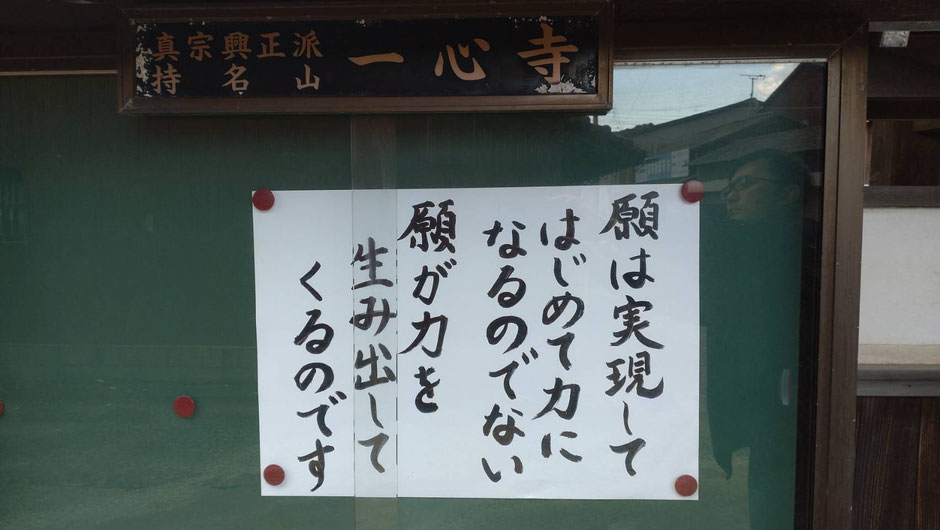 真宗興正派
持名山
一心寺
願は実現して
はじめて力に
なるのでない
願が力を
生み出して
くるのです